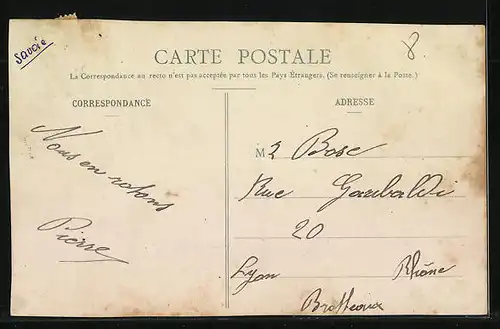 Savoie
8
CARTE POSTALE
La Correspondance au recto n'est pas acceptée par tous les Pays Étrangers. (Se renseigner à la Poste.)
CORRESPONDANCE
Nous en
Pierre
ADRESSE
M Bose
Rue Garibaldi
20
Lyon Rhône
Brotteaux